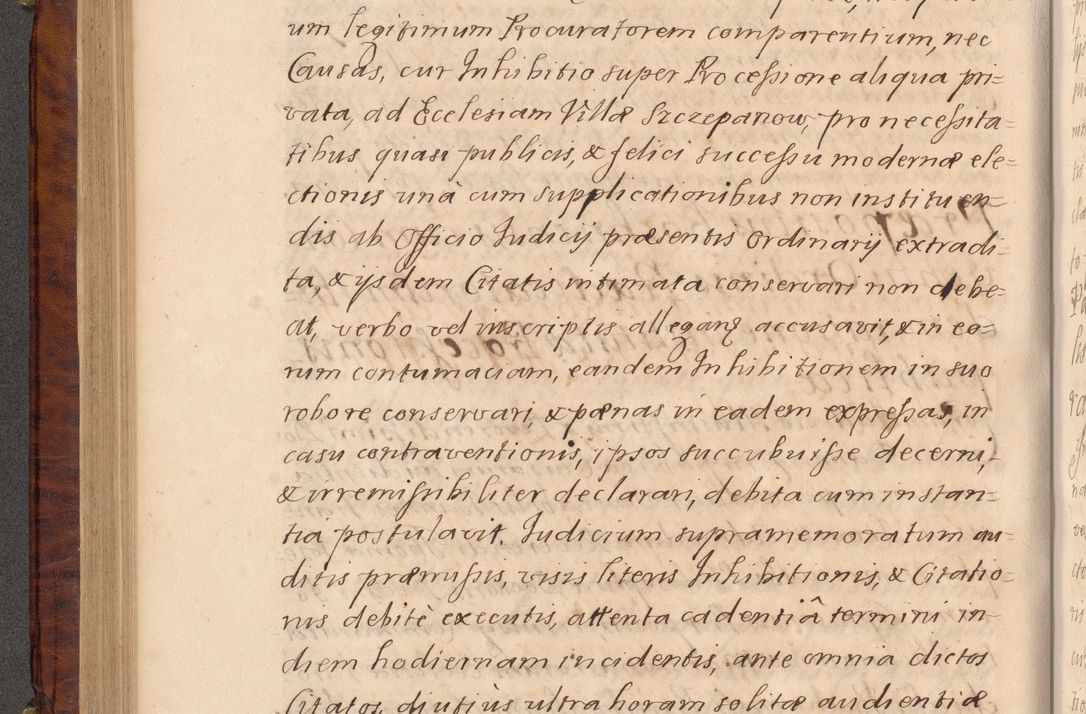 um legitimum Procuratorem comparentium, nec
Causas, cur Inhibitio super Processione aliqua pri=
vata, ad Ecclesiam Villæ Szczepanow, pro necessita=
tibus quasi publicis, & felici successu modernæ ele=
ctionis unà cum supplicationibus non instituen=
dis ab Officio Iudicij præsentis Ordinarij extradi=
ta, & ijsdem Citatis intimata conservari non debe=
at, verbo vel inscriptis allegan̄ accusavit, & in eo=
rum contumaciam, eandem Inhibitionem in suo
robore conservari, & pænas in eadem expressas, in
casu contraventionis, ipsos succubuisse decerni,
& irremissibiliter declarari, debita cum instan=
tia postulavit. Iudicium supramemoratum au=
ditis præmissis, visis literis Inhibitionis, & Citatio=
nis debitè executis, attenta cadentiâ termini in
diem hodiernam incidentis, ante omnia dictos
Citatos diutiùs ultra horam solitæ audientiæ